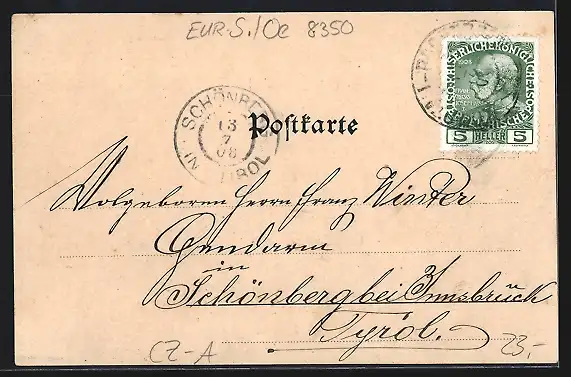 EUR-S./Oe 8350
KAISERLICHE KÖNIGLICHE
1908
5 HELLER 5
SCHÖNBERG
13
7
08
IN TIROL
Postkarte
Wolgeboren Herrn Franz Winter
Gendarm
in
Schönberg bei Innsbruck
Tyról.
CZ-A
23,-